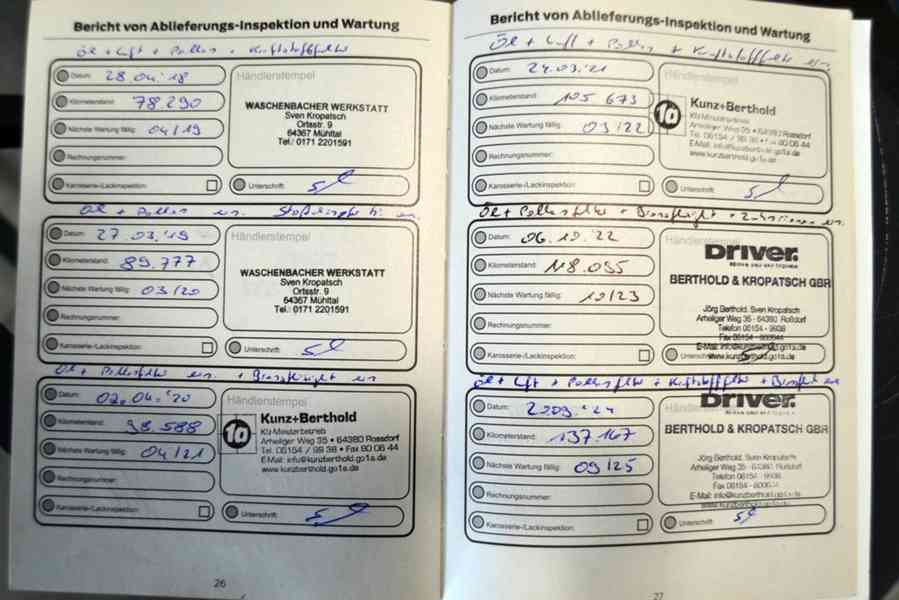 Bericht von Ablieferungs-Inspektion und Wartung
Öl + Luft + Pollen + Kraftstofffilter
Datum: 28.04.'18
Kilometerstand: 78290
Nächste Wartung fällig: 04/19
Rechnungsnummer:
Karosserie-/Lackinspektion:
Händlerstempel
WASCHENBACHER WERKSTATT
Sven Kropatsch
Ortsstr. 9
64367 Mühltal
Tel.: 0171 2201591
Unterschrift:
Öl + Pollen ern. Stoßdämpfer hi. ern.
Datum: 27.03.'19
Kilometerstand: 89.777
Nächste Wartung fällig: 03/20
Rechnungsnummer:
Karosserie-/Lackinspektion:
Händlerstempel
WASCHENBACHER WERKSTATT
Sven Kropatsch
Ortsstr. 9
64367 Mühltal
Tel.: 0171 2201591
Unterschrift:
Öl + Pollenfilter ern. + Bremsflüssigkeit ern
Datum: 02.04.'20
Kilometerstand: 98 588
Nächste Wartung fällig: 04/21
Rechnungsnummer:
Karosserie-/Lackinspektion:
Händlerstempel
1a Kunz+Berthold
Kfz-Meisterbetrieb
Arheilger Weg 35 • 64380 Rossdorf
Tel. 06154 / 99 38 • Fax 80 06 44
E-Mail: info@kunzberthold.go1a.de
www.kunzberthold.go1a.de
Unterschrift:
26
Bericht von Ablieferungs-Inspektion und Wartung
Öl + Luft + Pollen + Kraftstofffilter ern.
Datum: 24.03.'21
Kilometerstand: 105 673
Nächste Wartung fällig: 03/22
Rechnungsnummer:
Karosserie-/Lackinspektion:
Händlerstempel
1a Kunz+Berthold
Kfz-Meisterbetrieb
Arheilger Weg 35 • 64380 Rossdorf
Tel. 06154 / 99 38 • Fax 80 06 44
E-Mail: info@kunzberthold.go1a.de
www.kunzberthold.go1a.de
Unterschrift:
Öl + Pollenfilter + Bremsflüssigkeit + Zahnriemen ern.
Datum: 06.10.'22
Kilometerstand: 118.055
Nächste Wartung fällig: 10/23
Rechnungsnummer:
Karosserie-/Lackinspektion:
Händlerstempel
Driver.
BERTHOLD & KROPATSCH GBR
Jörg Berthold, Sven Kropatsch
Arheilger Weg 35 - 64380 Roßdorf
Telefon 06154 - 9938
Fax 06154 - 800644
E-Mail: info@kunzberthold.go1a.de
www.kunzberthold.go1a.de
Unterschrift:
Öl + Luft + Pollenfilter + Kraftstofffilter + ern
Datum: 2009.'24
Kilometerstand: 137.167
Nächste Wartung fällig: 09/25
Rechnungsnummer:
Karosserie-/Lackinspektion:
Driver.
BERTHOLD & KROPATSCH GBR
Jörg Berthold, Sven Kropatsch
Arheilger Weg 35 - 64380 Roßdorf
Telefon 06154 - 9938
Fax 06154 - 800644
E-Mail: info@kunzberthold.go1a.de
www.kunzberthold.go1a.de
Unterschrift:
27